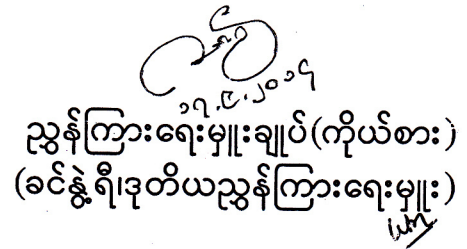 ၁၇.၉.၂၀၁၄
ညွှန်ကြားရေးမှူးချုပ်(ကိုယ်စား)
(ခင်နွဲ့ရီ၊ဒုတိယညွှန်ကြားရေးမှူး)